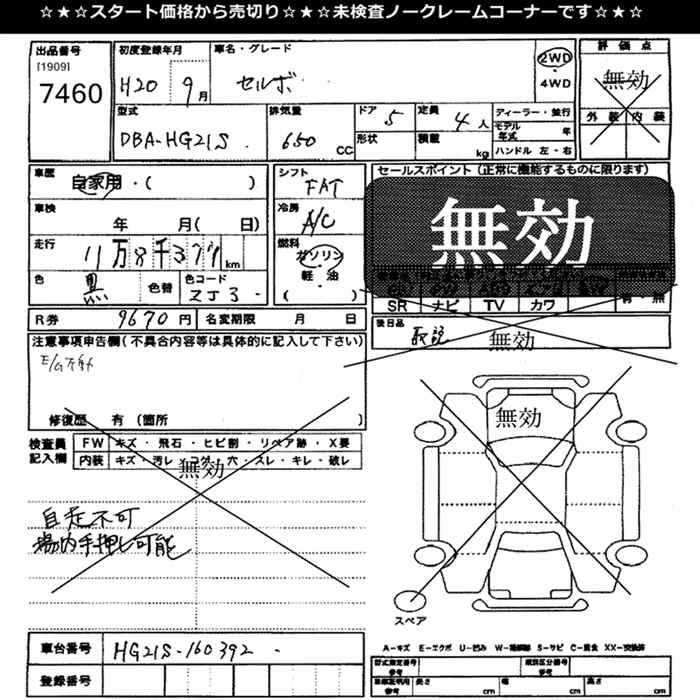 ☆★☆★スタート価格から売切り☆★☆★未検査ノークレームコーナーです☆★☆
出品番号 初度登録年月 車名・グレード 評価点
[1909]
7460 H20 9月 セルボ 2WD・4WD 無効
外装 内装
型式 排気量 ドア 定員 ディーラー・並行
DBA-HG21S 650 CC 5 4人 モデル年式 年
形状 積載 kg ハンドル 左・右
車歴 自家用・( ) シフト FAT セールスポイント(正常に機能するものに限ります)
無効
車検 年 月( 日) 冷房 A/C
走行 11万8千377km 燃料 ガソリン 軽・油 ( )
色 黒 色替 色コード ZJ3
SR ナビ TV カワ 有・無
R券 9670円 名変期限 月 日 後日品 取説 無効
注意事項申告欄(不具合内容等は具体的に記入して下さい)
修復歴 有(箇所 )
無効
検査員記入欄 FW キズ・飛石・ヒビ割・リペア跡・X要
内装 キズ・汚レ・コゲ・穴・スレ・キレ・破レ
無効
自走不可
場内手押し可能
スペア
車台番号 HG21S-160392
A-キズ E-エクボ U-凹み S-サビ C-腐食 XX-交換済
登録番号 型式指定番号 参考 類別区分番号 参考
参考 長さ cm 幅 cm 高さ cm